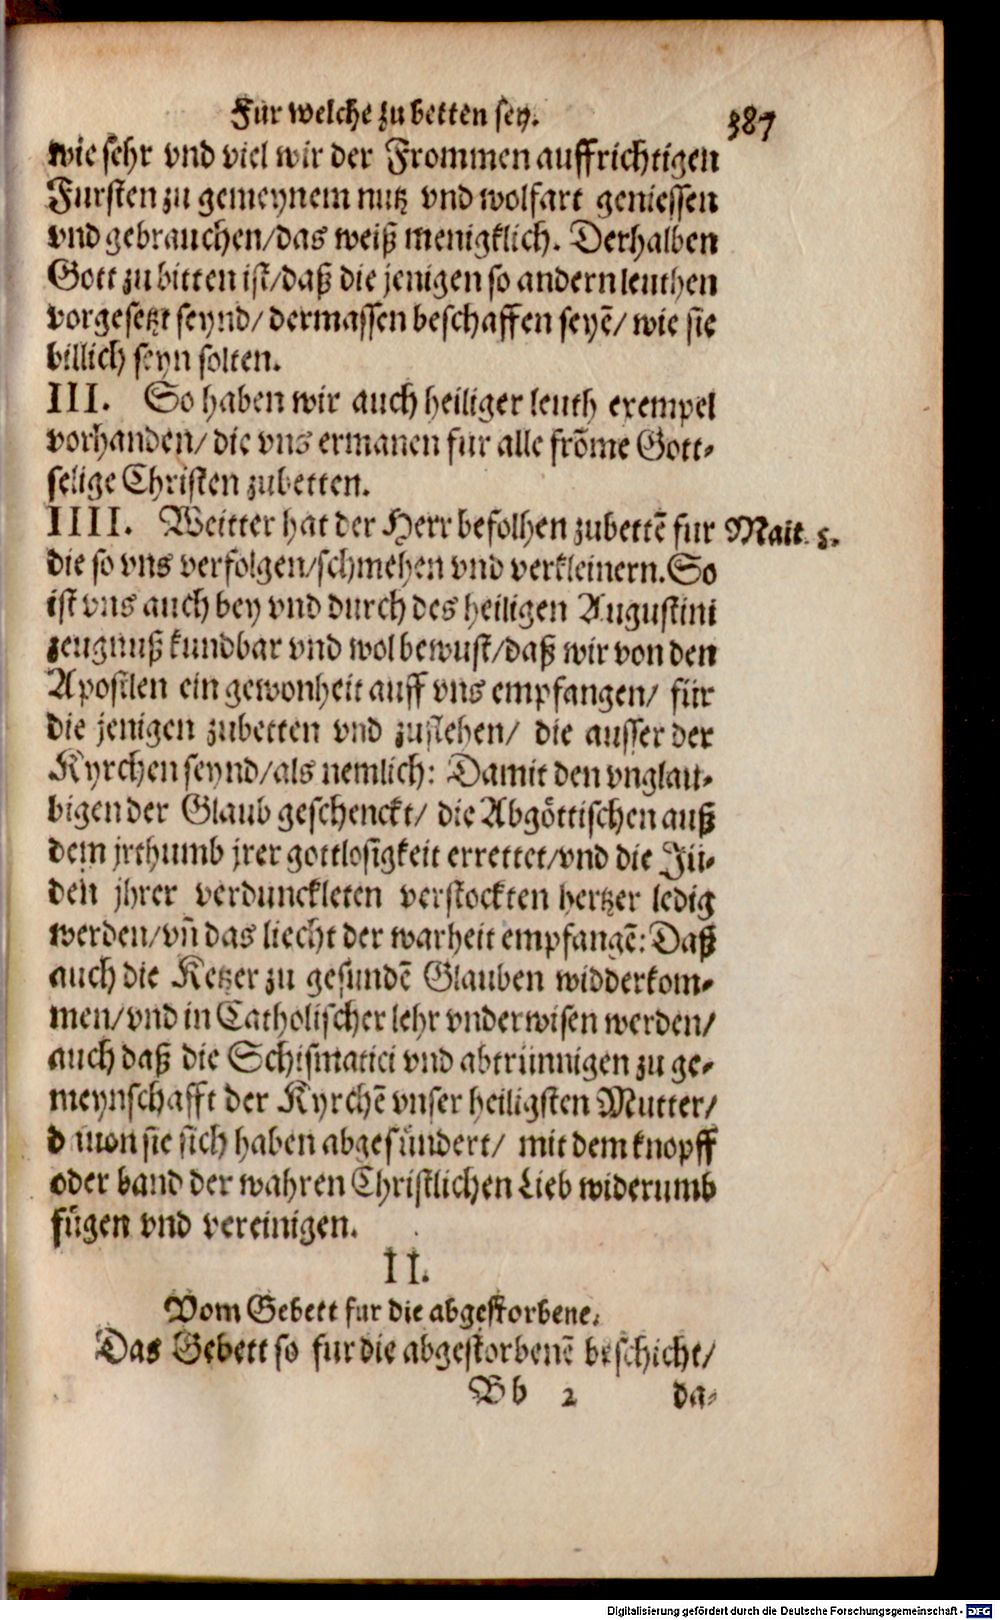 Fur welche zu betten sey. 387
wie sehr vnd viel wir der Frommen auffrichtigen
Fursten zu gemeynem nutz vnd wolfart geniessen
vnd gebrauchen/das weiß menigklich. Derhalben
Gott zu bitten ist/daß die jenigen so andern leuthen
vorgesetzt seynd/ dermassen beschaffen seyẽ/ wie sie
billich seyn solten.
III. So haben wir auch heiliger leuth exempel
vorhanden/ die vns ermanen fur alle frõme Gott-
selige Christen zubetten.
IIII. Weitter hat der Herr befolhen zubettẽ fur Matt. 5.
die so vns verfolgen/schmehen vnd verkleinern. So
ist vns auch bey vnd durch des heiligen Augustini
zeugnuß kundbar vnd wol bewust/daß wir von den
Apostlen ein gewonheit auff vns empfangen/ für
die jenigen zubetten vnd zuflehen/ die ausser der
Kyrchen seynd/als nemlich: Damit den vnglau-
bigen der Glaub geschenckt/ die Abgöttischen auß
dem jrthumb jrer gottlosigkeit errettet/vnd die Jü-
den jhrer verdunckleten verstockten hertzer ledig
werden/vñ das liecht der warheit empfangẽ: Daß
auch die Ketzer zu gesundẽ Glauben widderkom-
men/vnd in Catholischer lehr vnderwisen werden/
auch daß die Schismatici vnd abtrünnigen zu ge-
meynschafft der Kyrchẽ vnser heiligsten Mutter/
d uon sie sich haben abgesündert/ mit dem knopff
oder band der wahren Christlichen Lieb widerumb
fügen vnd vereinigen.
II.
Vom Gebett fur die abgestorbene.
Das Gebett so fur die abgestorbenẽ beschicht/
Bb 2 da-
Digitalisierung gefördert durch die Deutsche Forschungsgemeinschaft - DFG